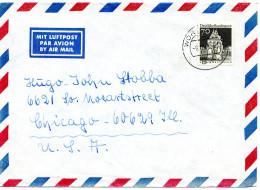 MIT LUFTPOST
PAR AVION
BY AIR MAIL
70
Hugo-John Stobba
6621 So. Mozartstreet
Chicago - 60629 Ill.
U. S. A.